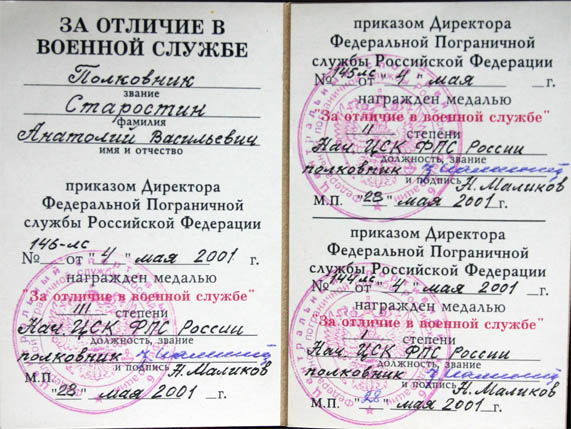 ЗА ОТЛИЧИЕ В
ВОЕННОЙ СЛУЖБЕ
Полковник
звание
Старостин
фамилия
Анатолий Васильевич
имя и отчество
приказом Директора
Федеральной Пограничной
службы Российской Федерации
№ 146-лс от "4" мая 2001 г.
награжден медалью
"За отличие в военной службе"
III степени
Нач. ЦСК ФПС России
должность, звание
полковник
и подпись Н. Маликов
М.П. "23" мая 2001 г.
приказом Директора
Федеральной Пограничной
службы Российской Федерации
№ 145лс от "4" мая г.
награжден медалью
"За отличие в военной службе"
II степени
Нач. ЦСК ФПС России
должность, звание
полковник
и подпись Н. Маликов
М.П. "23" мая 2001 г.
приказом Директора
Федеральной Пограничной
службы Российской Федерации
№ 144лс от "4" мая 2001 г.
награжден медалью
"За отличие в военной службе"
I степени
Нач. ЦСК ФПС России
должность, звание
полковник
и подпись Н. Маликов
М.П. "28" мая 2001 г.